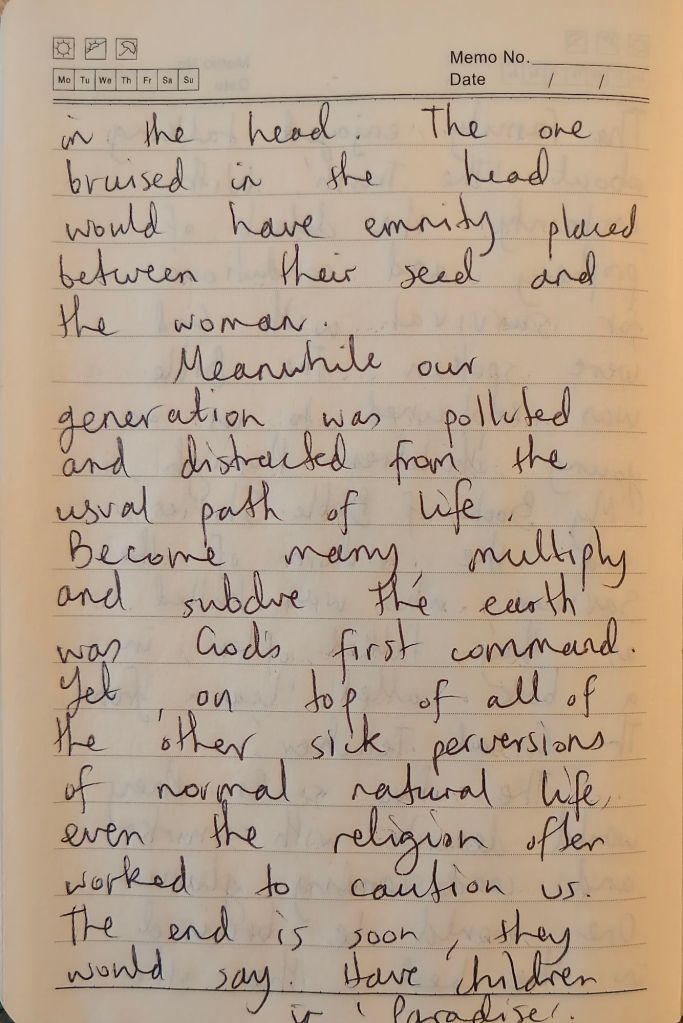 Memo No.
Mo Tu We Th Fr Sa Su
Date / /
in the head. The one
bruised in the head
would have emnity placed
between their seed and
the woman.
Meanwhile our
generation was polluted
and distracted from the
usual path of life.
Become many, multiply
and subdue the earth
was God's first command.
Yet, on top of all of
the other sick perversions
of normal natural life,
even the religion often
worked to caution us.
The end is soon, they
would say. Have children
in 'Paradise'.